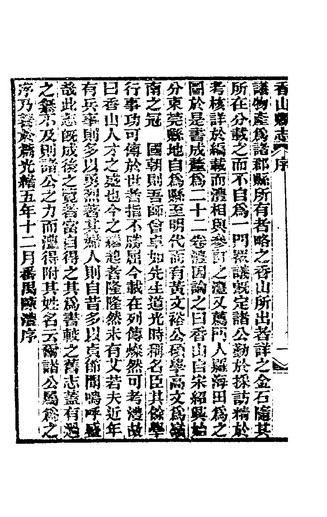 香山縣志 序
議物產爲諸郡縣所有者略之香山所出者詳之金石隨其
所在分載之而不自爲一門襍議旣定諸公勤於採訪精於
考核詳於編載而澧相與參訂之澧又薦門人羅海田爲之
圖於是書成釐爲二十二卷澧因論之曰香山自宋紹興始
分東莞縣地自爲縣至明代而有黃文裕公碩學高文爲嶺
南之冠 國朝則吾師會卓如先生道光時稱名臣其餘學
行事功可傳於世者指不勝屈今載在列傳燦然可考澧故
曰香山人才之盛也今之繼起者隆隆然未有艾若夫近年
有兵事則多以勇烈著其婦人則自昔多以貞節聞嗚呼盛
哉此志旣成後之覽者當自得之其爲書較之舊志蓋有過
之無不及則諸公之力而澧得附其姓名云爾諸公屬爲之
序乃書於篇光緖五年十二月番禺陳澧序